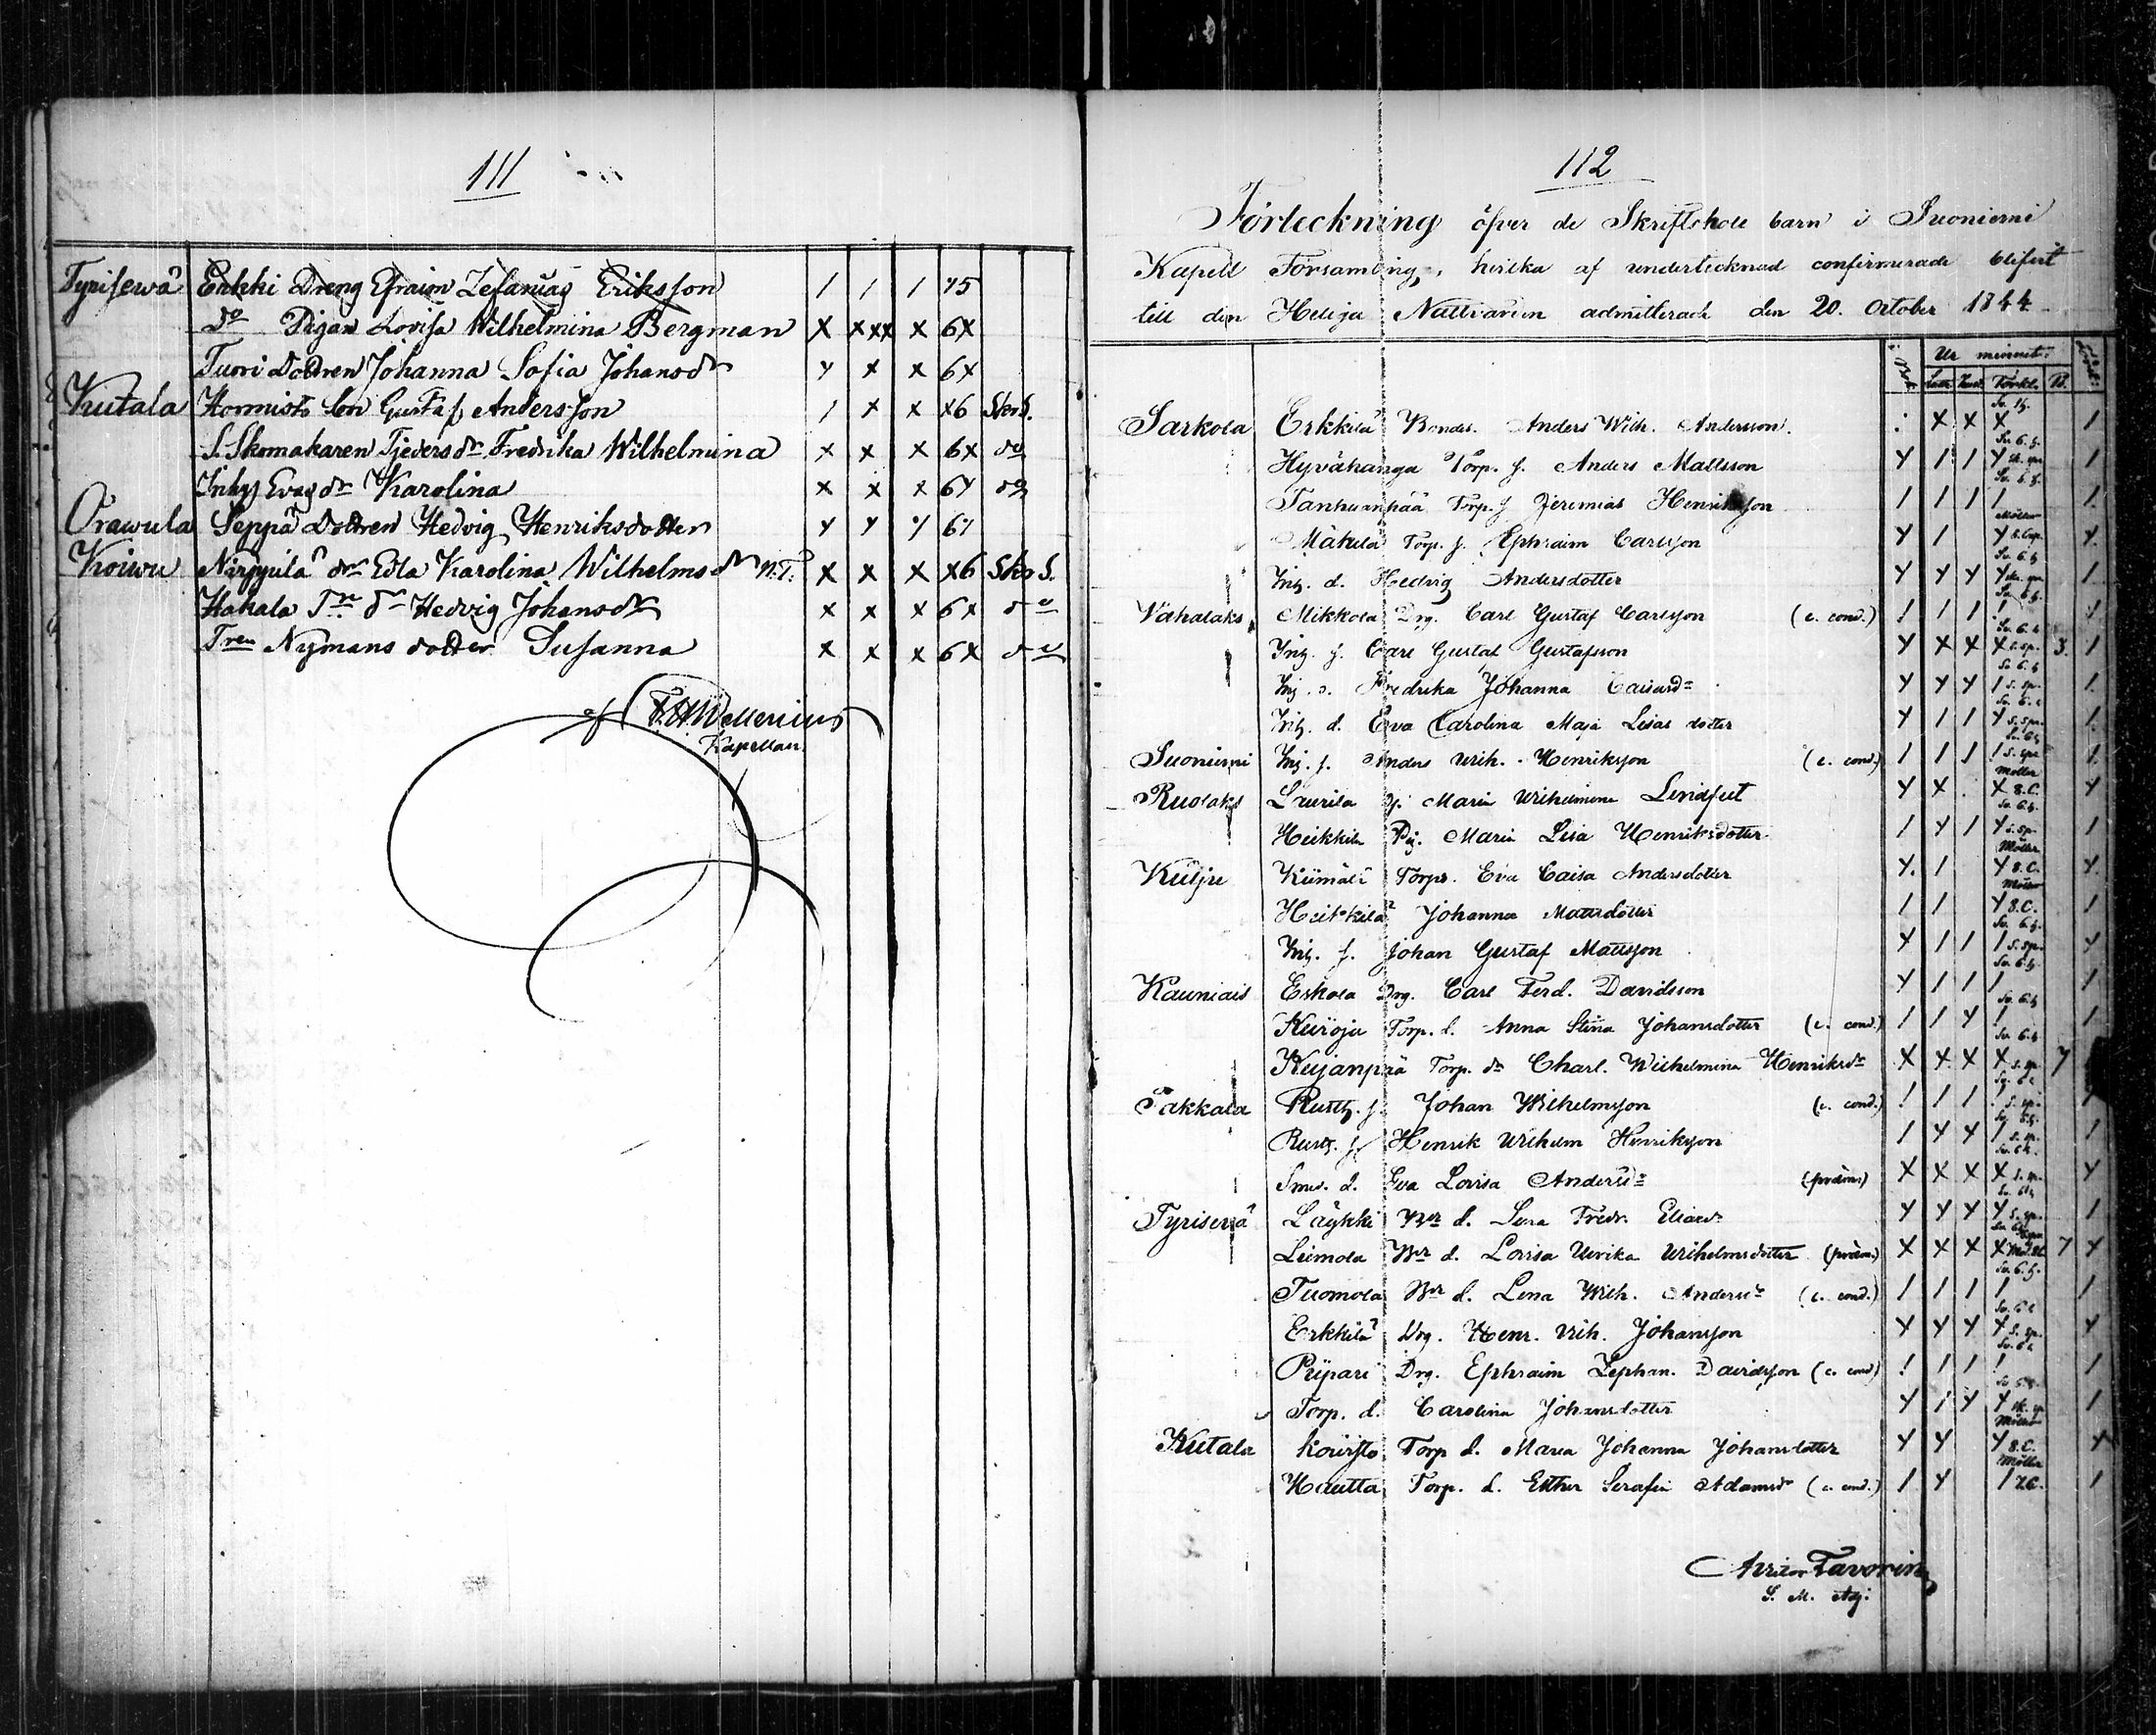 111
Tyrisewä Erkki Dreng Efraim Zefanias Eriksson / / / 75
Do Pigan Lovisa Wilhelmina Bergman X XXX X 6X
Tuori Dottren Johanna Sofia Johansdr Y X X 6X
Kutala Hormisto Son Gustaf Andersson / X X X6 SkrS.
S. Skomakaren Tjeders dr Fredrika Wilhelmina X X X 6X do
Inhys Evas dr Karolina X X X 6Y do
Orawula Seppä Dottren Hedvig Henriksdotter Y Y Y 6Y
Koiwu dr Edla Karolina Wilhelms dr N.T. X X X X6 Skr S.
Hakala Trp dr Hedvig Johansdr X X X 6X do
Tren Nymans dotter Susanna X X X 6X do
Kapellan.
112
Förteckning öfver de Skriftskole barn i Suonierni
Kapell Församling, hvilka af undertecknad confirmerade blifvit
till den Heliga Nattvarden admitterade den 20. October 1844
i Bok Ur minnet.
Förkl.
Sarkola Erkkilä Bondes. Anders Wilh. Andersson. X X X /
Hyvähanga Torp. s. Anders Mattsson Y / / Y /
Tanhuanpää Torp. s. Jeremias Henriksson / / / / /
Mäkelä Torp. s. Ephraim Carlsson Y / Y Y
Inh. d. Hedvig Andersdotter Y Y Y Y /
Vahalaks Mikkola Drg. Carl Gustaf Carlsson (c. cond.) / / / / /
Inh. s. Carl Gustaf Gustafsson Y X X X 3. /
Inh. d. Fredrika Johanna Caisasdr Y Y Y / /
Inh. d. Eva Carolina Maja Lisas dotter Y / / Y /
Suonierni Inh. s. Anders Wilh. Henriksson (c. cond.) / / / / /
Ruolaks Laurila Maria Wilhelmina Lindqvist Y X X Y
Heikkilä Pig. Maria Lisa Henriksdotter / Y / Y /
Kulju Torp. Eva Caisa Andersdotter Y / Y 8.C. Y
Heikkilä Johanna Mattsdotter / / Y 8.C. /
Inh. s. Johan Gustaf Mattsson Y / / / Y
Kauniais Eskola Drg. Carl Ferd. Davidsson Y / / / /
Torp. d. Anna Stina Johansdotter (c. cond.) / / Y / /
Kujanpää Torp. dr Charl. Wilhelmina Henriksdr X X X X 7
Pakkala Rusth. s. Johan Wilhelmsson (c. cond.) / / / /
Rusth. s. Henrik Wilhelm Henriksson / Y Y / /
Smed. d. Eva Lovisa Andersdr (præm.) X X X X Y
Tyrisevä Läykki Br d. Lena Fredr. Eliasdr Y Y Y Y /
Liimola Br d. Lovisa Ulrika Wilhelmsdotter (præm.) X X X X 7 X
Tuomola Br d. Lena Wilh. Andersdr (c. cond.) / / / / /
Erkkilä Drg. Henr. Wilh. Johansson Y Y Y Y Y
Piipari Drg. Ephraim Zephan. Davidsson (c. cond) / / / / /
Torp. d. Carolina Johansdotter Y / Y Y /
Kutala Torp d. Maria Johanna Johansdotter Y Y Y 8.C. Y
Hautta Torp. d. Esther Serafia Adamsdr (c. cond.) / Y / 7.C. /
Favorin
S. M. Adj: